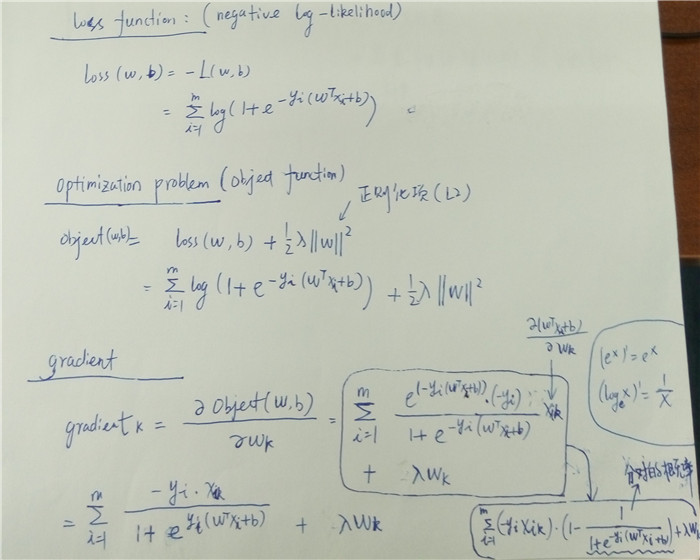 loss function: (negative log-likelihood)
loss(w,b) = -L(w,b)
= ∑_{i=1}^{m} log(1+e^{-yi(wᵀxi+b)})
optimization problem (Object function)
正则化项(L2)
object(w,b)= loss(w,b) + ½λ||w||²
= ∑_{i=1}^{m} log(1+e^{-yi(wᵀxi+b)}) + ½λ||w||²
∂(wᵀxi+b)/∂wk
gradient
(eˣ)'=eˣ
(logₑx)'=1/x
gradient k = ∂Object(w,b)/∂wk = ∑_{i=1}^{m} e^{(-yi(wᵀxi+b))}·(-yi)/(1+e^{-yi(wᵀxi+b)}) xik
+ λwk
分对的概率
= ∑_{i=1}^{m} -yi·xik/(1+e^{yi(wᵀxi+b)}) + λwk
∑_{i=1}^{m}(-yixik)·(1-1/(1+e^{-yi(wᵀxi+b)}))+λw